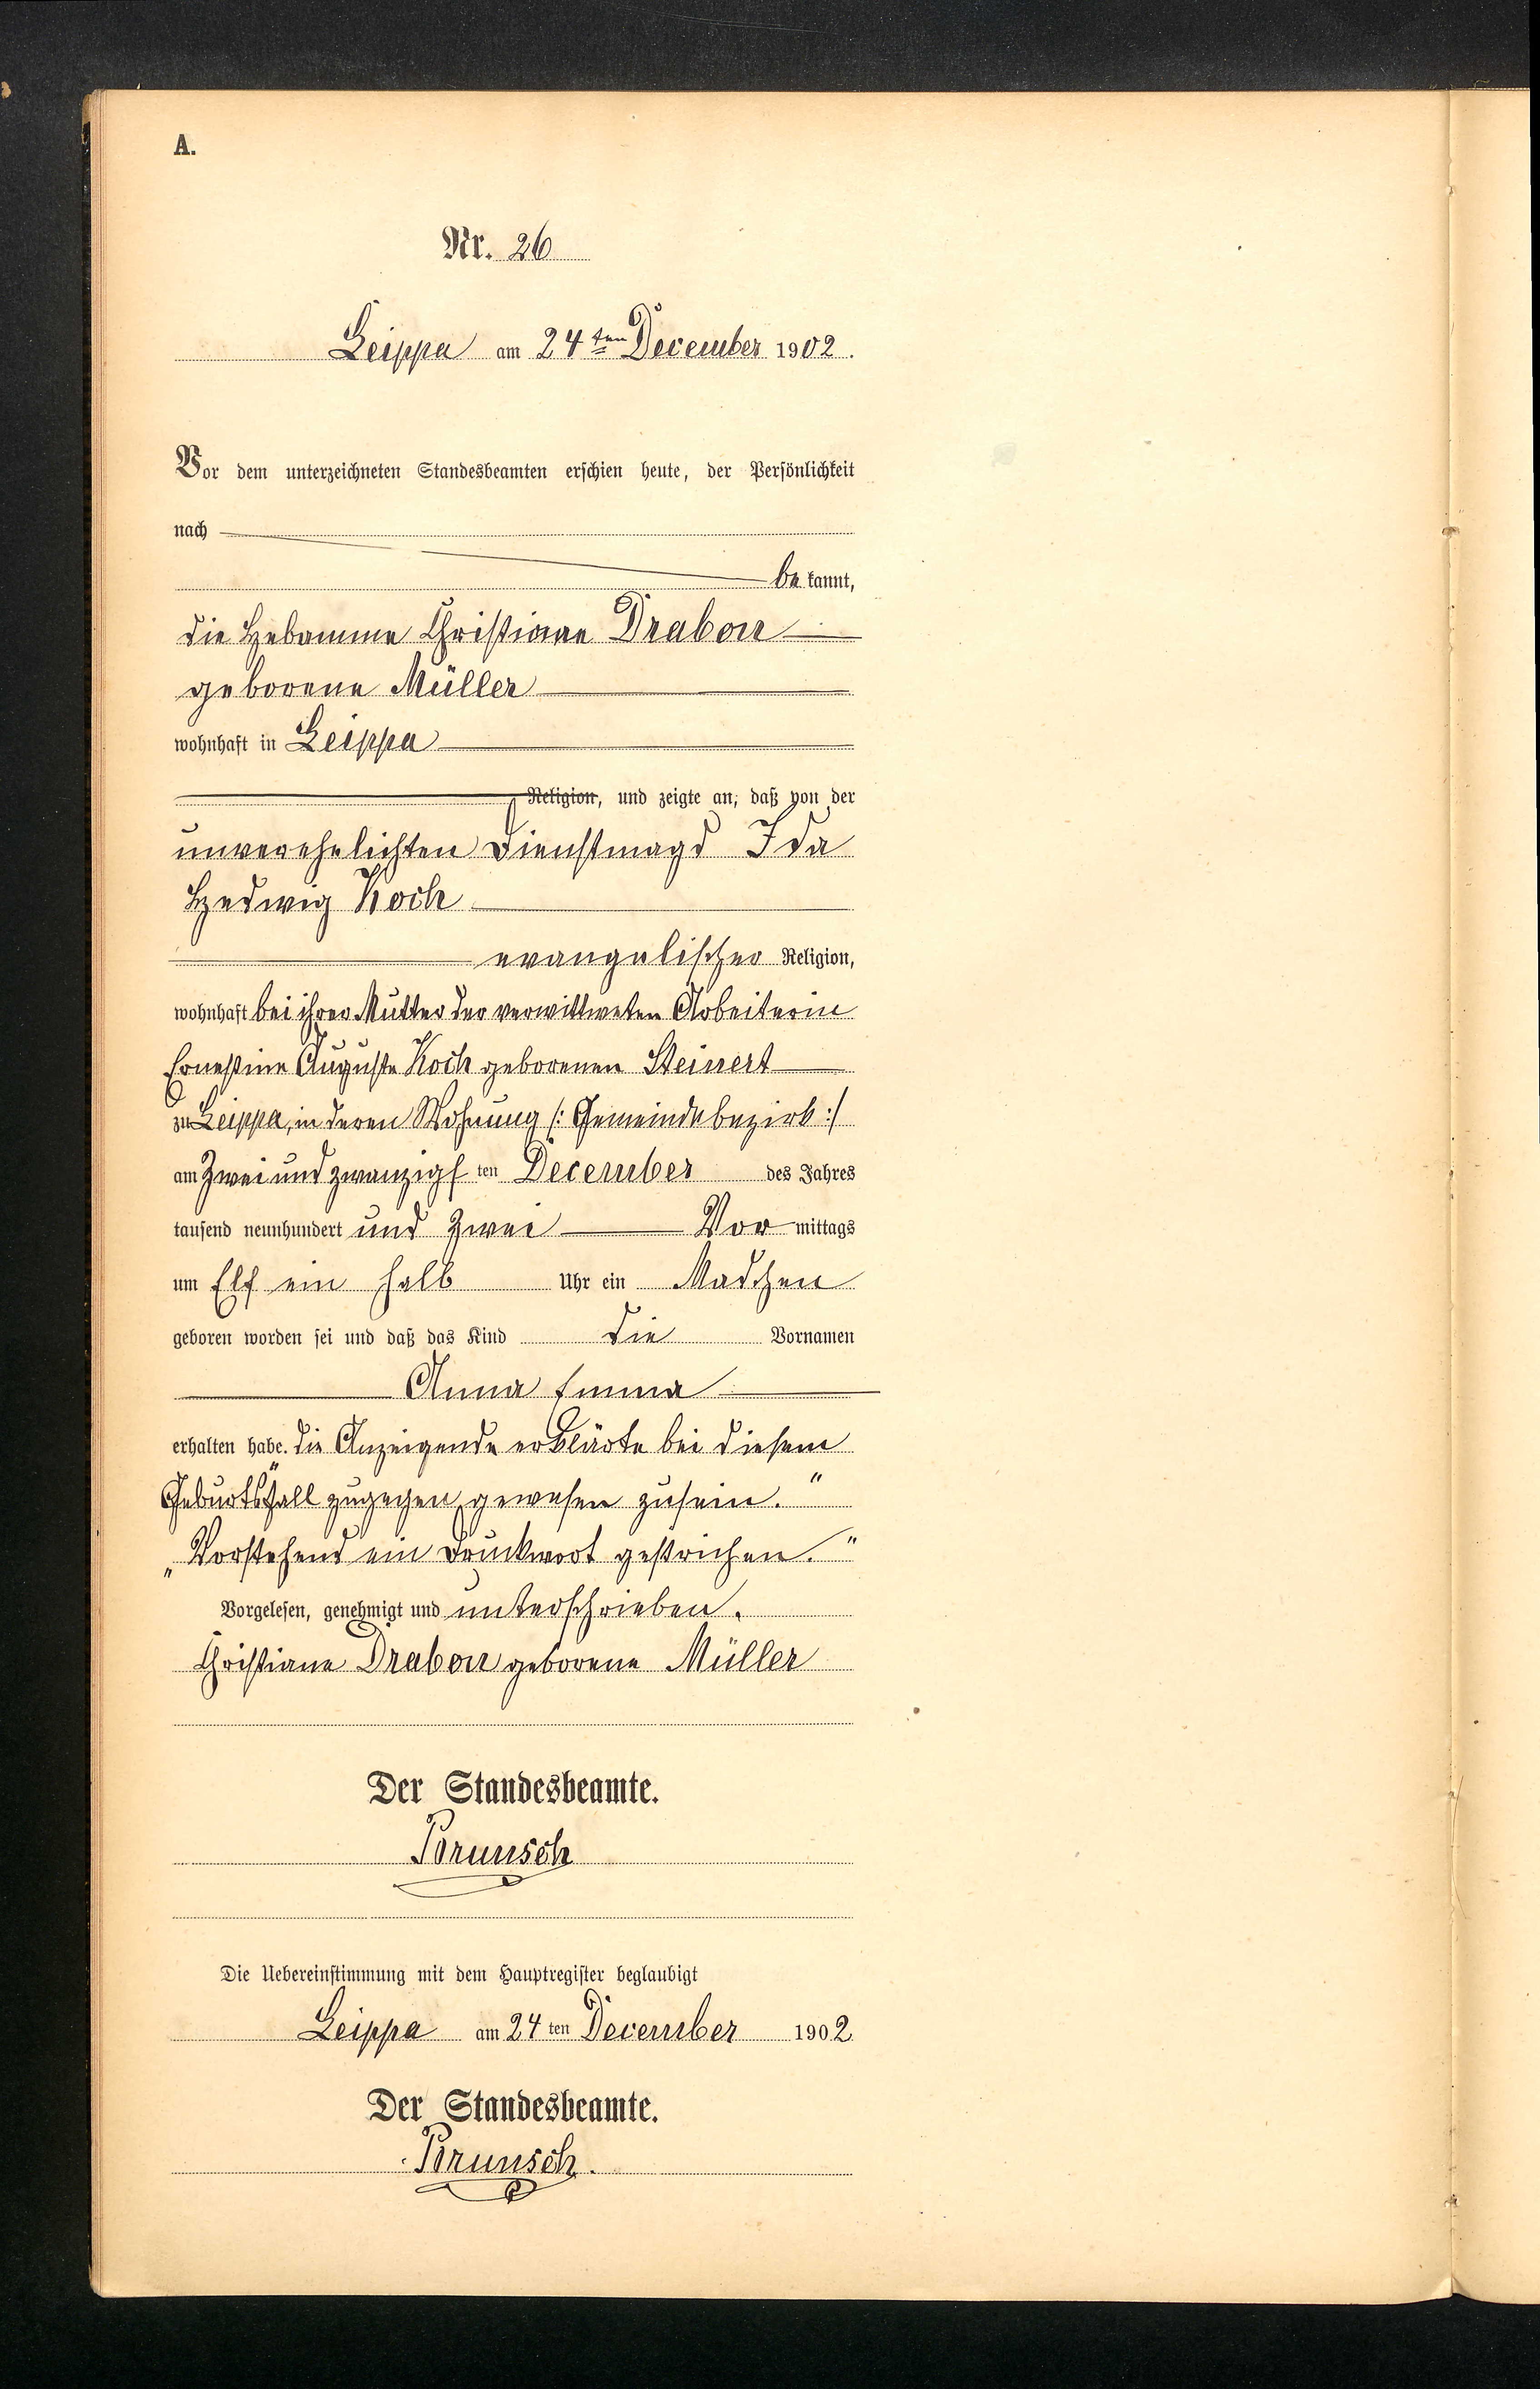 A.
Nr. 26
Leippa am 24ten December 1902.
Vor dem unterzeichneten Standesbeamten erschien heute, der Persönlichkeit
nach
bekannt,
die Hebamme Christiane Drabon
geborene Müller
wohnhaft in Leippa
Religion, und zeigte an, daß von der
unverehelichten Dienstmagd Ida
Hedwig Koch
evangelischer Religion,
wohnhaft bei ihrer Mutter der verwittweten Arbeiterin
Ernestine Auguste Koch geborenen Steinert
zu Leippa, in deren Wohnung /: Gemeindebezirk :/
am Zwei und zwanzigsten December des Jahres
tausend neunhundert und Zwei Vormittags
um Elf ein halb Uhr ein Madchen
geboren worden sei und daß das Kind die Vornamen
Anna Emma
erhalten habe. die Anzeigende erklärte bei diesem
Geburtsfall zugegen gewesen zusein."
„Vorstehend ein Druckwort gestrichen."
Vorgelesen, genehmigt und unterschrieben.
Christiane Drabon geborene Müller
Der Standesbeamte.
Brunsch
Die Uebereinstimmung mit dem Hauptregister beglaubigt
Leippa am 24ten December 1902
Der Standesbeamte.
Brunsch.